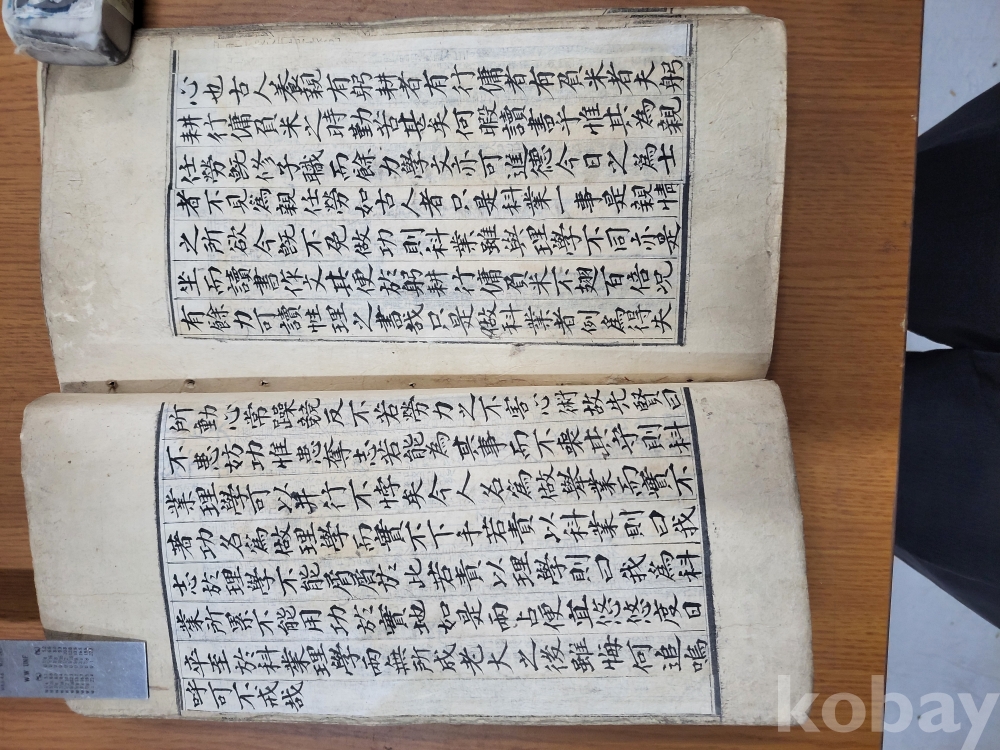 心也古人養親有躬耕者有行傭者有負米者夫躬
耕行傭負米之時勤苦甚矣何暇讀書乎惟其為親
任勞旣修子職而餘力學文亦可進德今日之為士
者不見為親任勞如古人者只是科業一事是親情
之所欲今旣不免做功則科業雖與理學不同亦是
坐而讀書作文其便於躬耕行傭負米不翅百倍况
有餘力可讀性理之書哉只是做科業者例為得失
所動心常躁競反不若勞力之不害心術故先賢曰
不患妨功惟患奪志若能為其事而不喪其守則科
業理學可以並行不悖矣今人名為做擧業而實不
著功名為做理學而實不下手若責以科業則曰我
志於理學不能屑屑於此若責以理學則曰我為科
業所累不能用功於實地如是兩占便宜悠悠度日
卒至於科業理學兩無所成老大之後雖悔何追嗚
呼可不戒哉
kobay